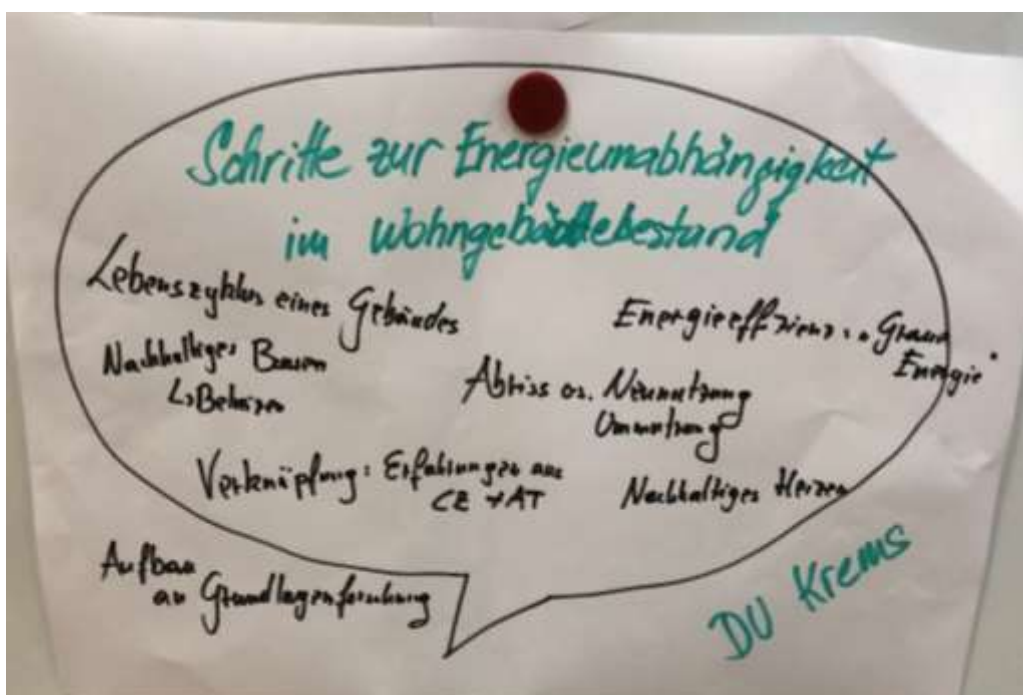 Schritte zur Energieunabhängigkeit
im Wohngebäudebestand
Lebenszyklus eines Gebäudes
Energieeffizienz: "Graue
Energie"
Nachhaltiges Bauen
↳ Beheizen
Abriss vs. Neunutzung
Umnutzung
Verknüpfung: Erfahrungen aus
CZ + AT
Nachhaltiges Heizen
Aufbau
an Grundlagenforschung
DU Krems